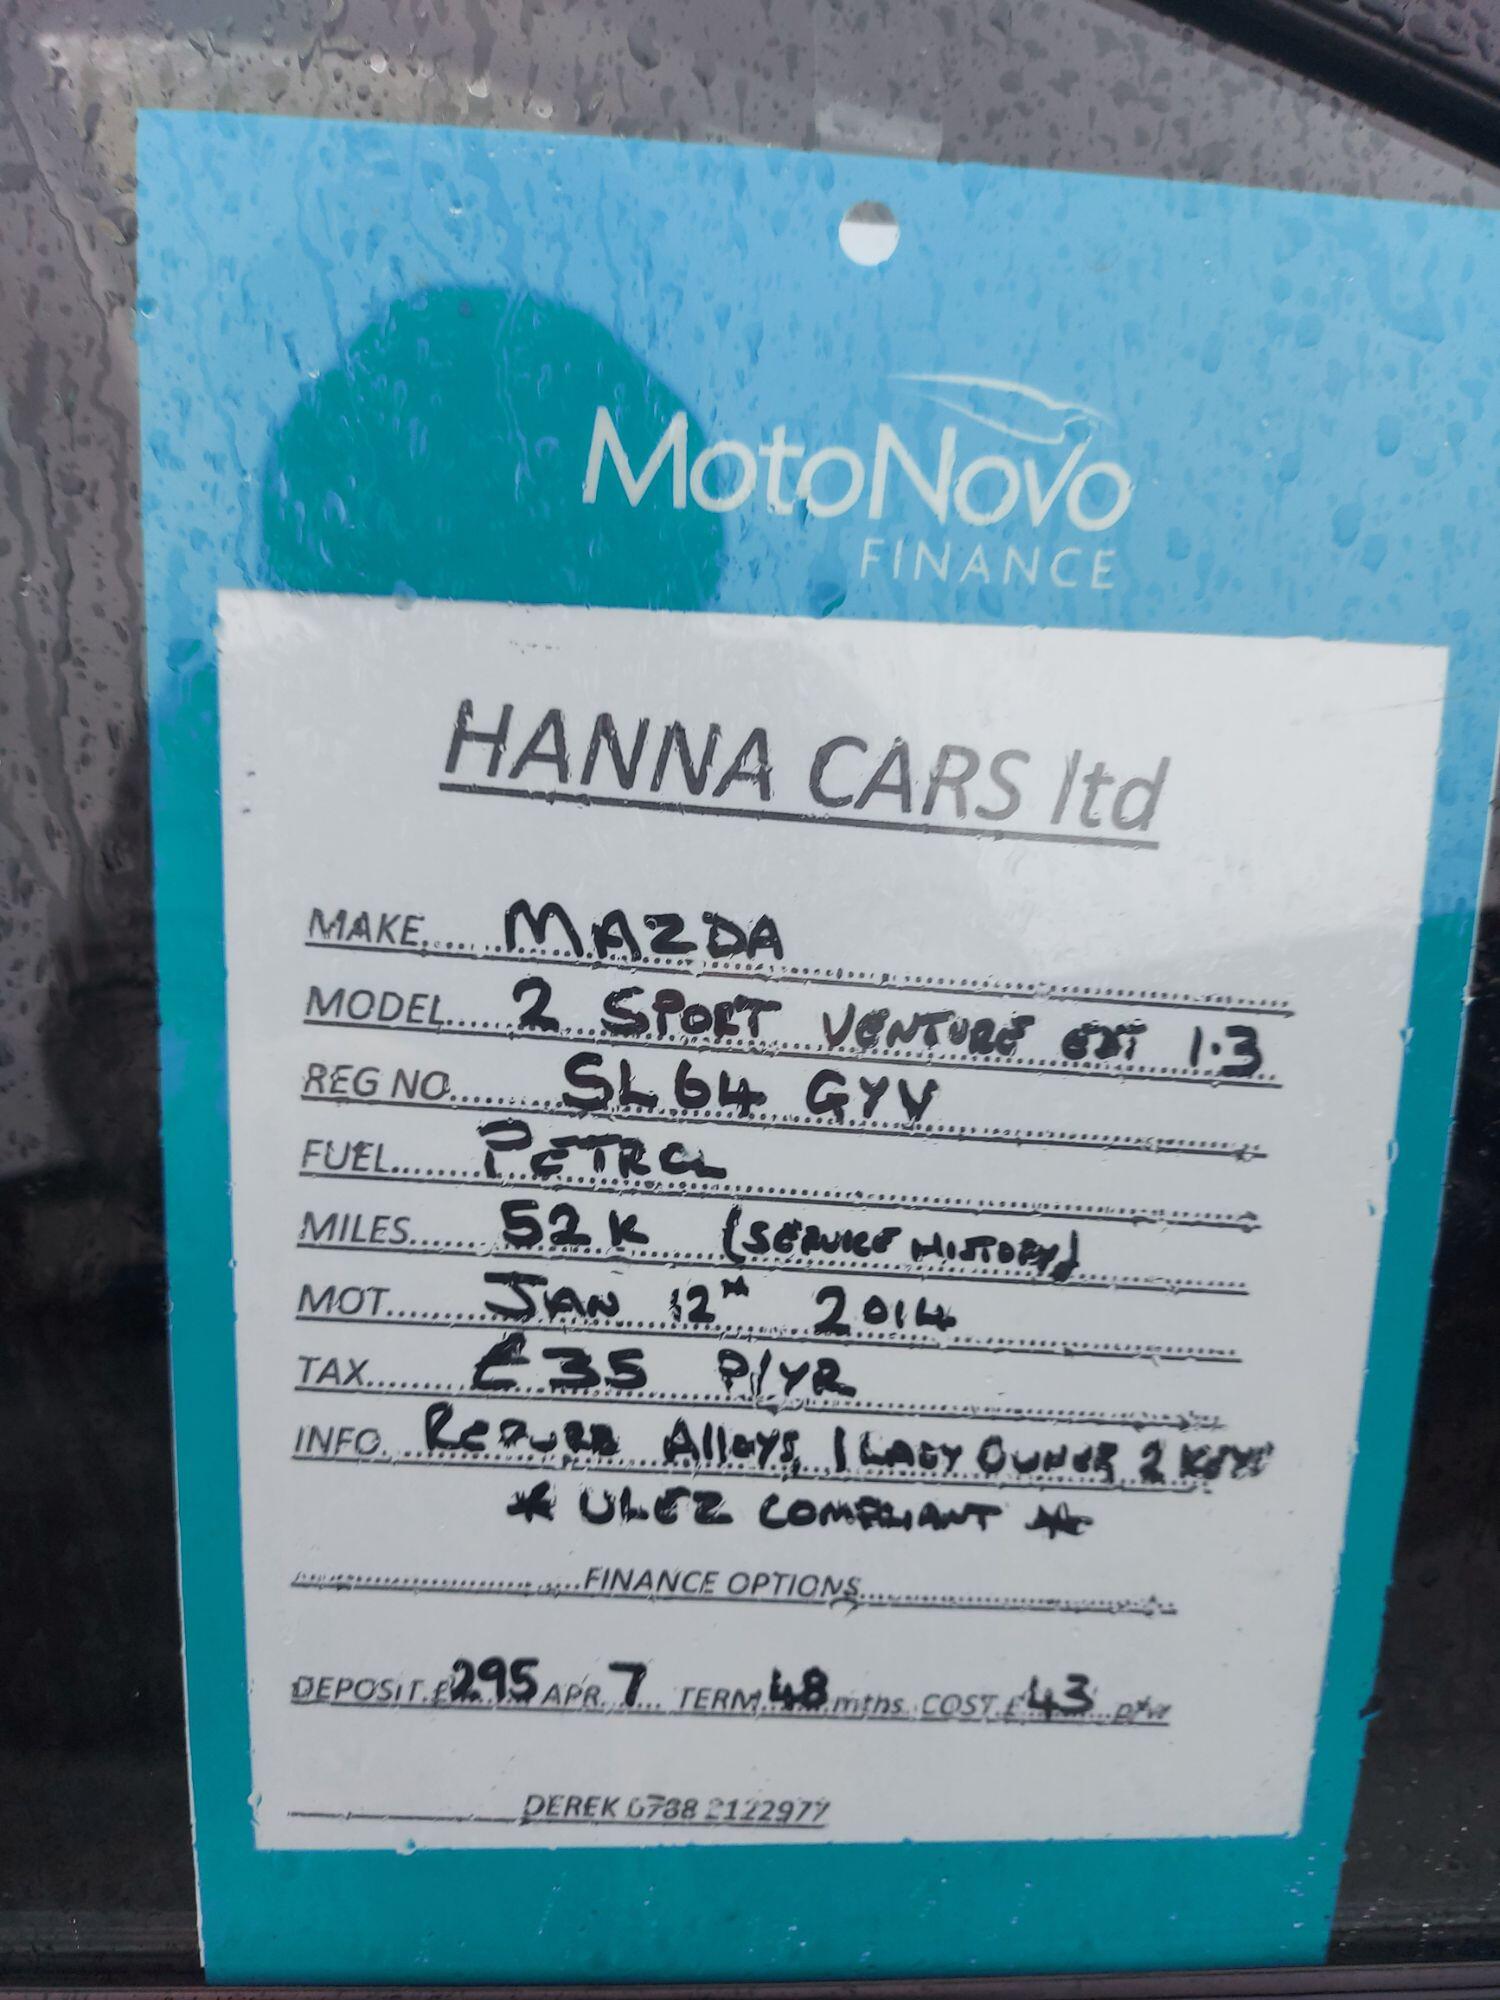 MotoNovo
FINANCE
HANNA CARS ltd
MAKE MAZDA
MODEL 2 SPORT VENTURE EDT 1.3
REG NO SL64 GYV
FUEL PETROL
MILES 52K (SERVICE HISTORY)
MOT JAN 12TH 2014
TAX £35 P/YR
INFO REFURB Alloys, 1 LADY OWNER 2 KEYS
* ULEZ COMPLIANT *
FINANCE OPTIONS
DEPOSIT £295 APR 7 TERM 48 mths COST £43 p/w
DEREK 0788 2122977